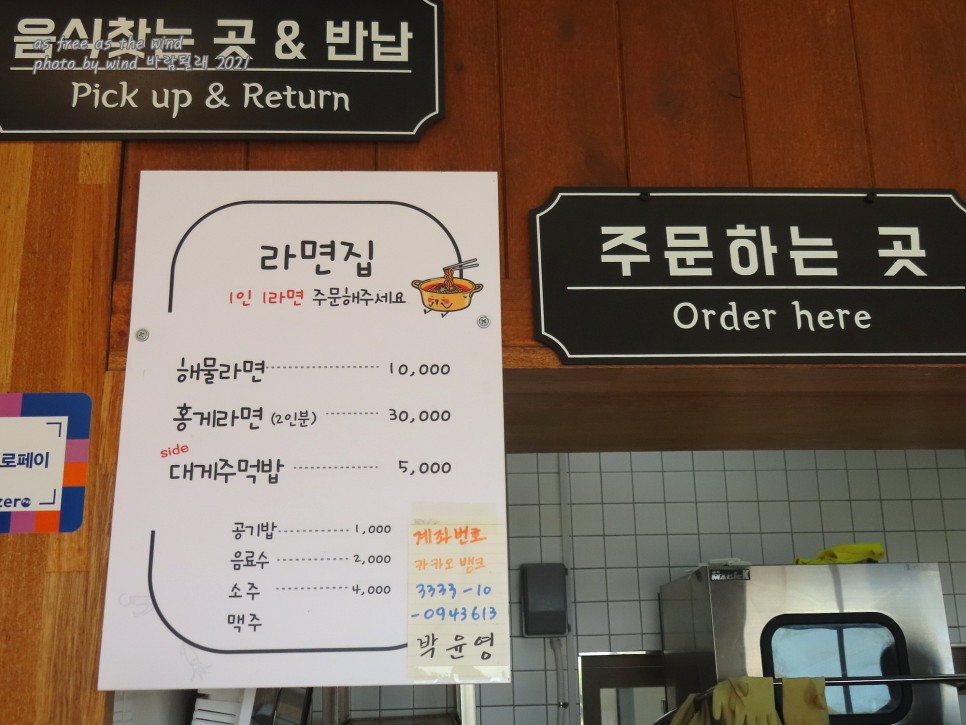 음식찾는 곳 & 반납
as free as the wind
photo by wind 바람될래 2021
Pick up & Return
라면집
1인 1라면 주문해주세요
해물라면 10,000
홍게라면 (2인분) 30,000
side
대게주먹밥 5,000
공기밥 1,000
음료수 2,000
소주 4,000
맥주
계좌번호
카카오 뱅크
3333-10
-0943613
박윤영
주문하는 곳
Order here
로페이
zero
MAGICX